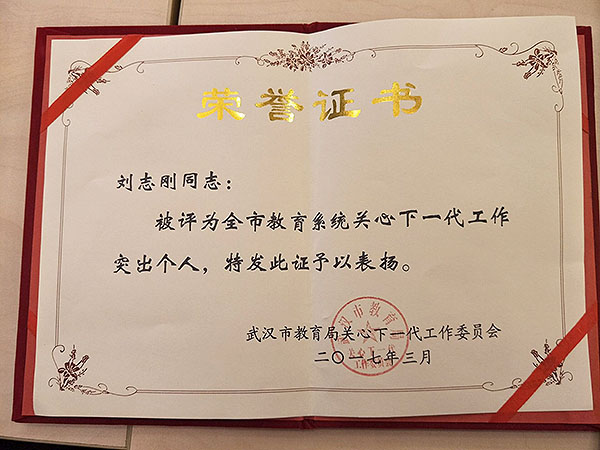 荣誉证书
刘志刚同志：
被评为全市教育系统关心下一代工作
突出个人，特发此证予以表扬。
武汉市教育局关心下一代工作委员会
二〇一七年三月